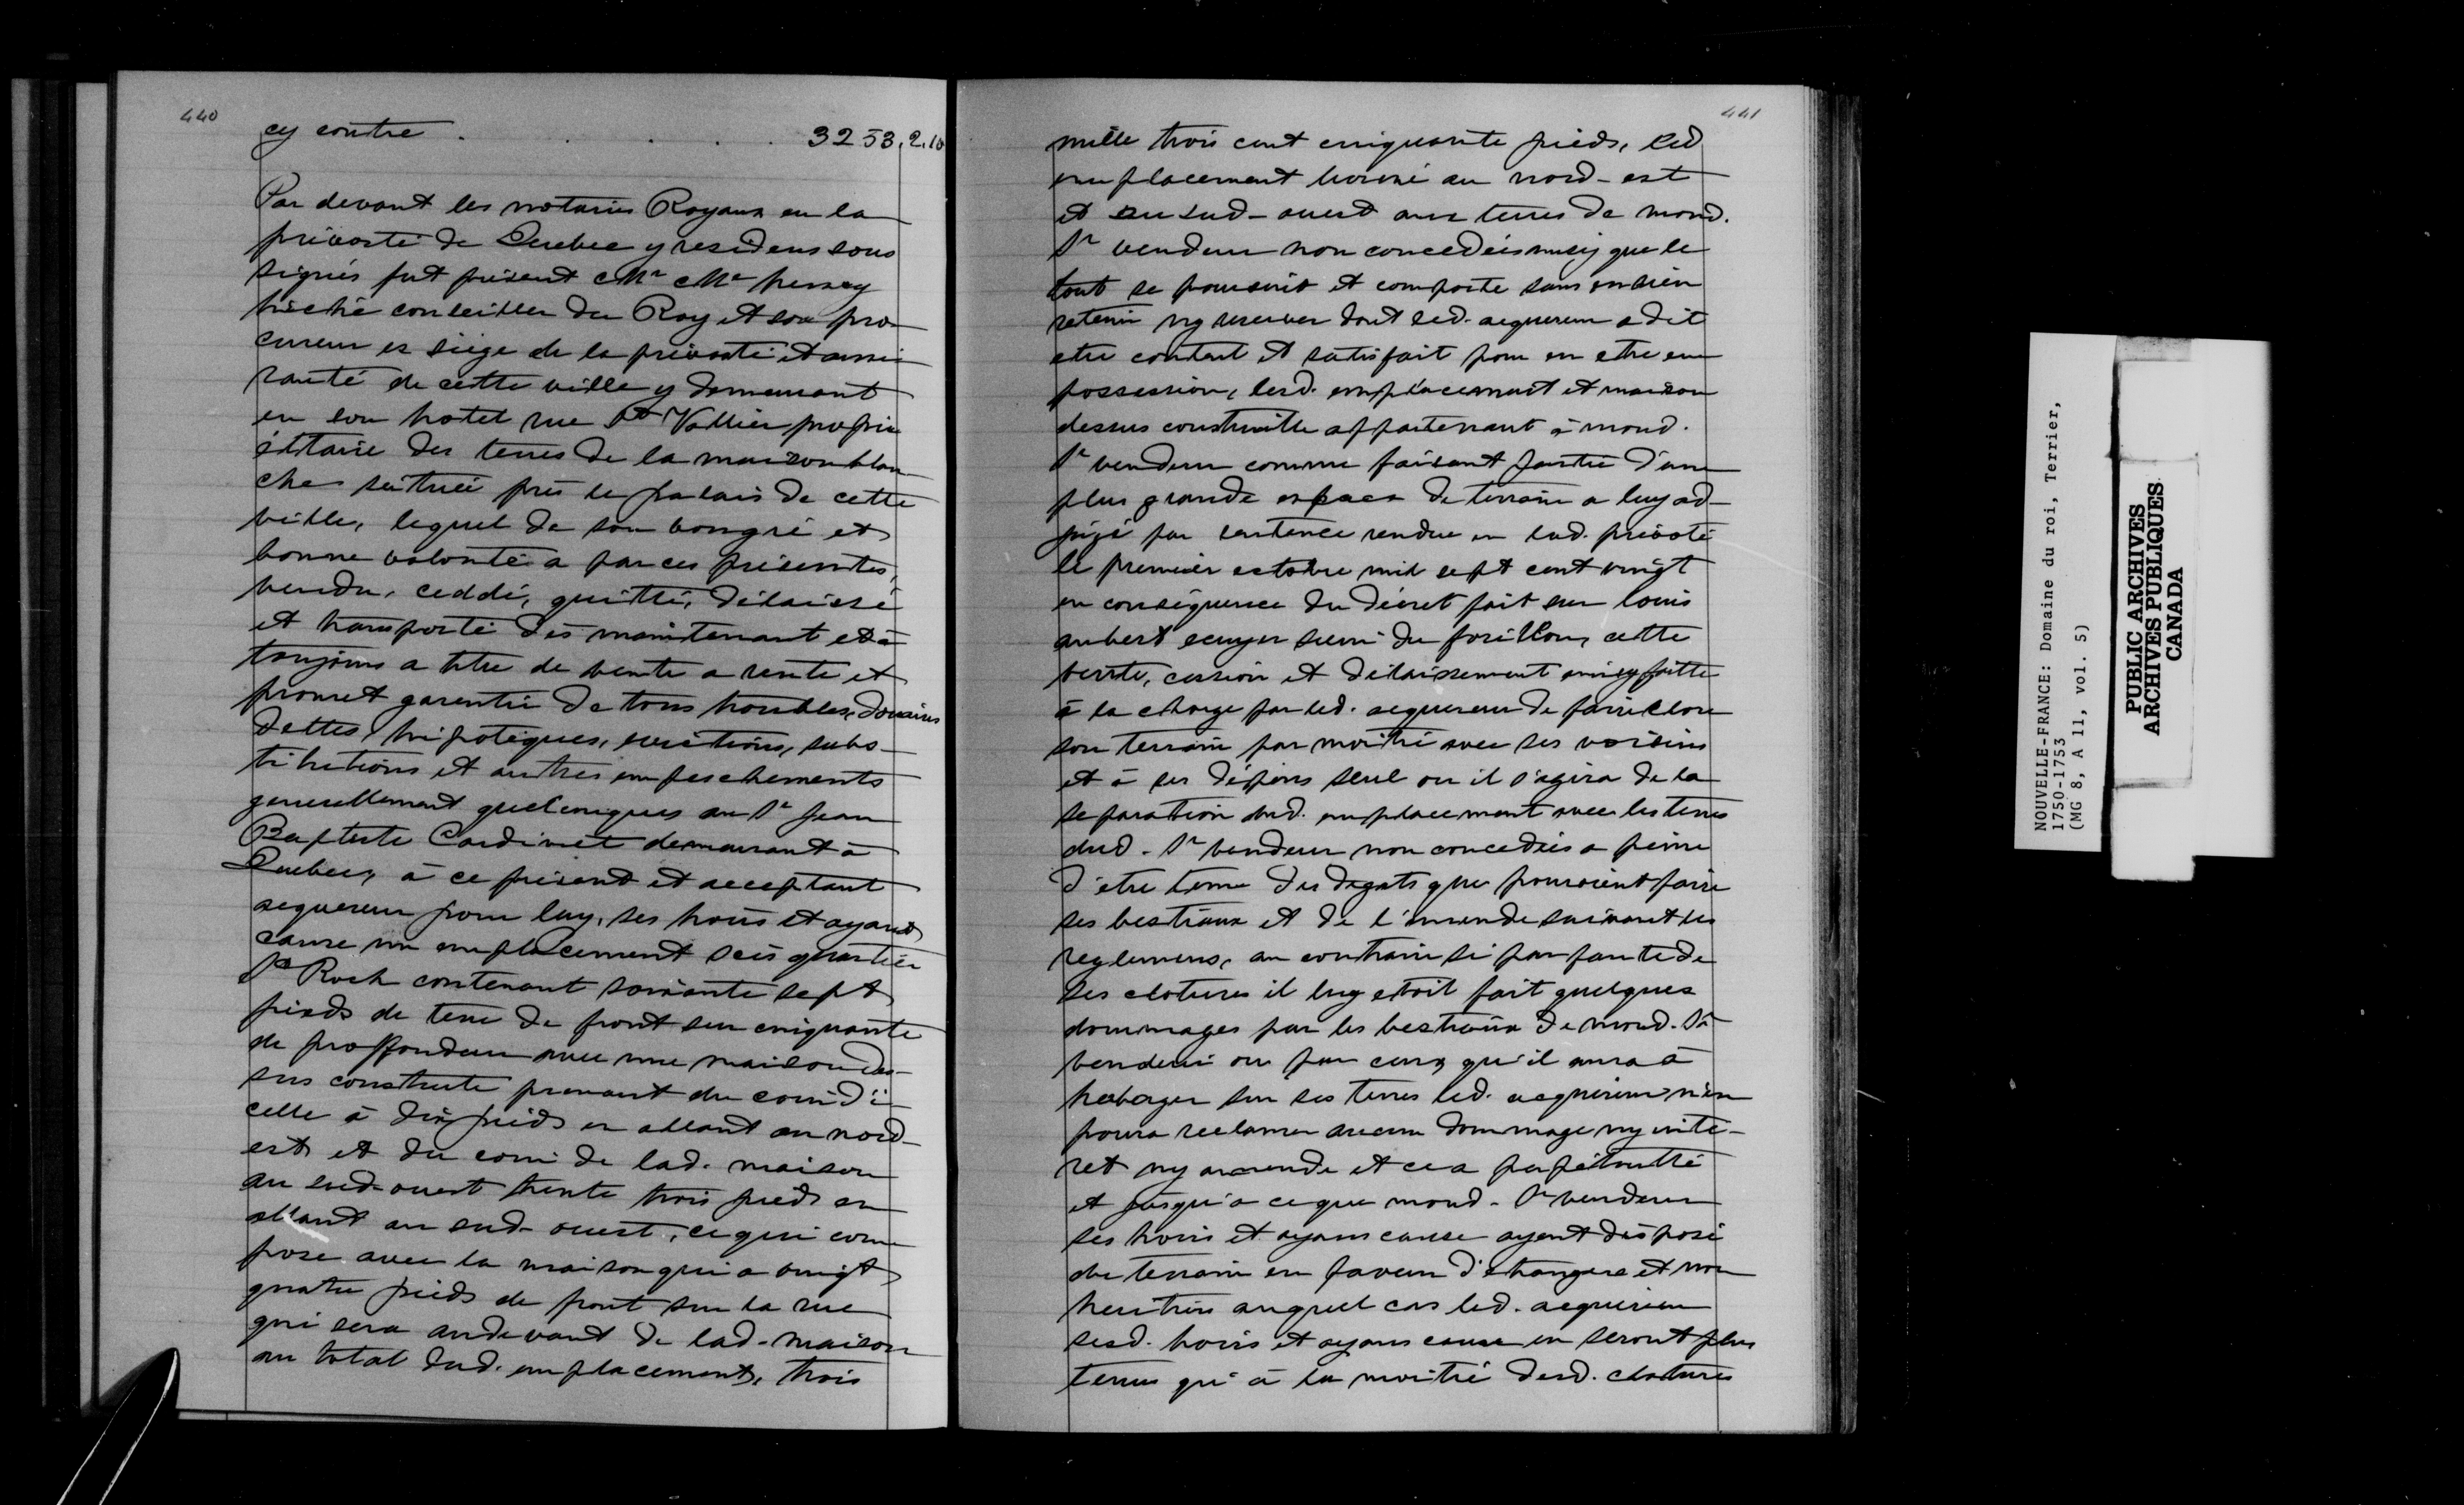 440
cy contre . . . . 3253.2.10
Par devant les notaires Royaux en la
prévosté de Quebec y residens sous
signés fut présent Mr Me henry
hiché conseiller du Roy et son pro-
cureur es siège de la prévosté et amiu
rauté de cette ville y demeurant
en son hotel rue St Vallier propri
éttaire des terres de la maison blan
che scituée près le palais de cette
ville, lequel de son bongré et
bonne volonté a par ces présentes,
vendu, ceddé, quitté, délaissé
et transporté dès maintenant et à
toujours a titre de vente a rente et
promet garentie de tous troubles, douaires
dettes, hipotèques, evictions, subs-
titutions et autres empeschements
generallement quelconques au Sr Jean
Baptiste Cardinet demeurant à
Quebec, à ce présent et acceptant
aequereur pour luy, ses hoirs et ayans
cause un emplacement scis quartier
St Roch contenant soixante sept
pieds de terre de front sur cinquante
de proffondeur avec une maison des-
sus construite prenant du coin d'i-
celle à dix pieds en allant au nord-
est et du coin de lad. maison
au sud-ouest trente trois pieds en
allant au sud-ouest, ce qui com
pose avec la maison qui a vingt
quatre pieds de front sur la rue
qui sera audevant de lad. maison
au total dud. emplacement, trois
441
mille trois cent cinquante pieds, led
emplacement borné au nord-est
et au sud-ouest aux terres de mond.
Sr vendeur non concedées ainsy que le
tout se poursuit et comporte sans en rien
retenir ny reserver dont led. aequereur a dit
etre content et satisfait pour en etre en
possession, lesd. emplacement et maison
dessus construitte appartenant à mond.
Sr vendeur comme faisant partie d'une
plus grande espace de terrain a luy ad-
jugé par sentence rendue en lad. prévoté
le premier octobre mil sept cent vingt
en conséquence du décret fait sur louis
aubert ecuyer sieur du forillon, cette
vente, cession et délaissement ainsy faitte
à la charge par led. aequereur de faire clore
son terrain par moitié avec ses voisins
et à ses dépens seul ou il s'agira de la
separation dud. emplacement avec les terres
dud. Sr vendeur non concedées a peine
d'etre tenu des degats que pouroient faire
ses bestiaux et de l'amende suivant les
reglemens, au contraire si par faute de
ses clotures il luy etoit fait quelques
dommages par les bestiaux de mond. Sr
vendeur ou par ceux qu'il aura à
hebager sur ses terres led. acquereur n'en
poura reclamer aucun dommage ny inté-
ret ny amende et ce a perpétuitté
et jusqu'a ce que mond. Sr vendeur
ses hoirs et ayans cause ayent disposé
du terrain en faveur d'etrangers et non
heritiers auquel cas led. aequereur
sesd. hoirs et ayans cause en seront plus
tenus qu'à la moitié desd. clotures
NOUVELLE-FRANCE: Domaine du roi, Terrier,
1750-1753
(MG 8, A 11, vol. 5)
PUBLIC ARCHIVES
ARCHIVES PUBLIQUES
CANADA